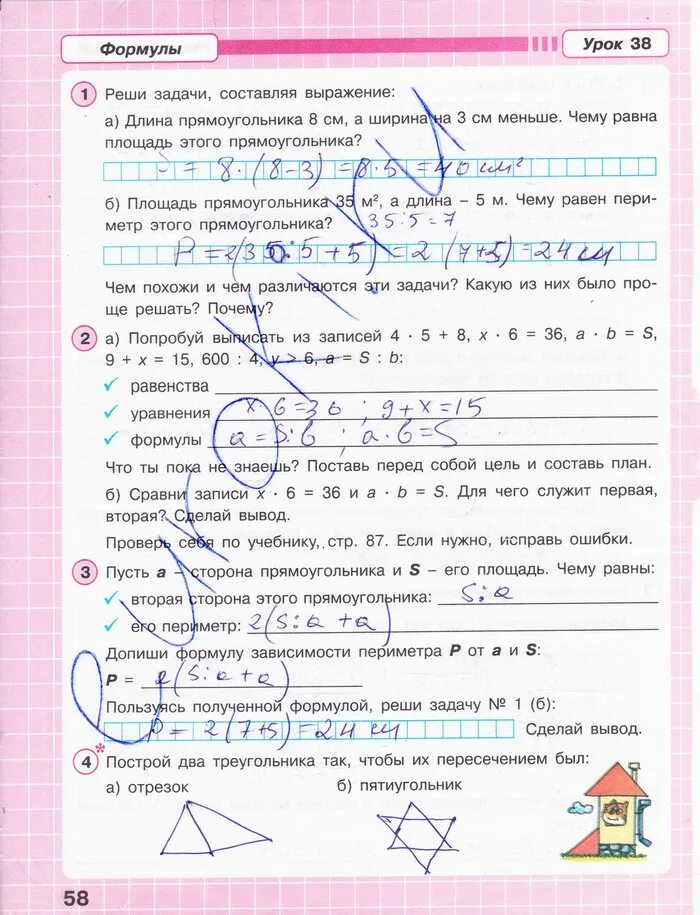 Формулы
Урок 38
1 Реши задачи, составляя выражение:
а) Длина прямоугольника 8 см, а ширина на 3 см меньше. Чему равна
площадь этого прямоугольника?
S = 8·(8-3)=8·5=40 см²
б) Площадь прямоугольника 35 м², а длина – 5 м. Чему равен пери-
метр этого прямоугольника? 35:5=7
P = 2(35:5+5)=2(7+5)=24 см
Чем похожи и чем различаются эти задачи? Какую из них было про-
ще решать? Почему?
2 а) Попробуй выписать из записей 4 · 5 + 8, x · 6 = 36, a · b = S,
9 + x = 15, 600 : 4, y > 6, a = S : b:
✓ равенства
✓ уравнения x·6=36 ; 9+x=15
✓ формулы a=S:b ; a·b=S
Что ты пока не знаешь? Поставь перед собой цель и составь план.
б) Сравни записи x · 6 = 36 и a · b = S. Для чего служит первая,
вторая? Сделай вывод.
Проверь себя по учебнику, стр. 87. Если нужно, исправь ошибки.
3 Пусть a – сторона прямоугольника и S – его площадь. Чему равны:
✓ вторая сторона этого прямоугольника: S:a
✓ его периметр: 2(S:a+a)
Допиши формулу зависимости периметра P от a и S:
P = 2(S:a+a)
Пользуясь полученной формулой, реши задачу № 1 (б):
P= 2(7+5)=24 см Сделай вывод.
4* Построй два треугольника так, чтобы их пересечением был:
а) отрезок б) пятиугольник
58